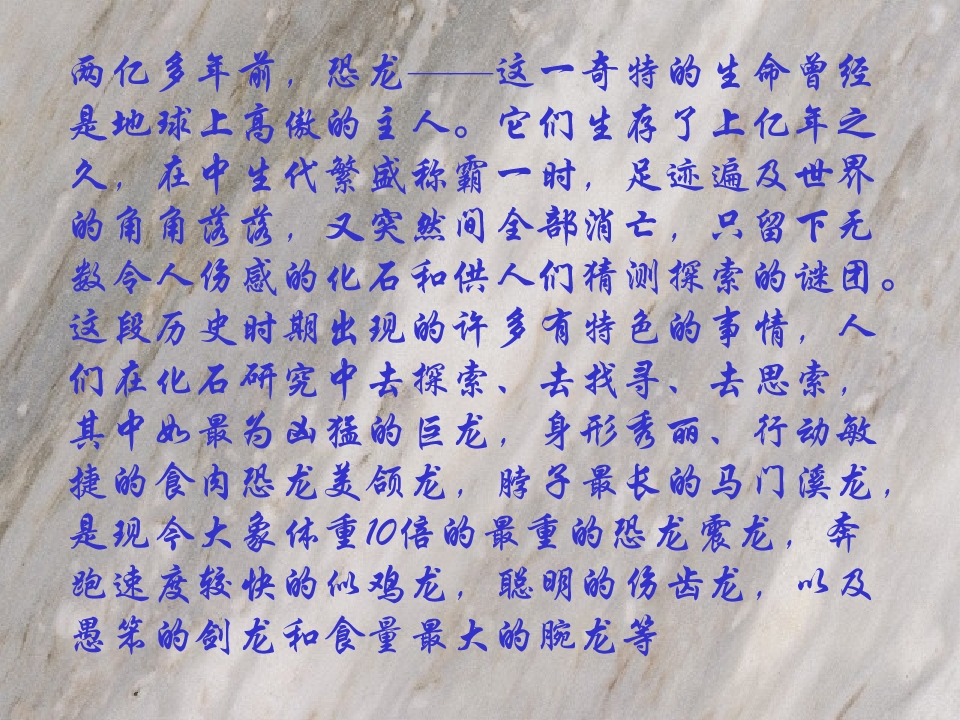 两亿多年前，恐龙——这一奇特的生命曾经
是地球上高傲的主人。它们生存了上亿年之
久，在中生代繁盛称霸一时，足迹遍及世界
的角角落落，又突然间全部消亡，只留下无
数令人伤感的化石和供人们猜测探索的谜团。
这段历史时期出现的许多有特色的事情，人
们在化石研究中去探索、去找寻、去思索，
其中如最为凶猛的巨龙，身形秀丽、行动敏
捷的食肉恐龙美颌龙，脖子最长的马门溪龙，
是现今大象体重10倍的最重的恐龙震龙，奔
跑速度较快的似鸡龙，聪明的伤齿龙，以及
愚笨的剑龙和食量最大的腕龙等